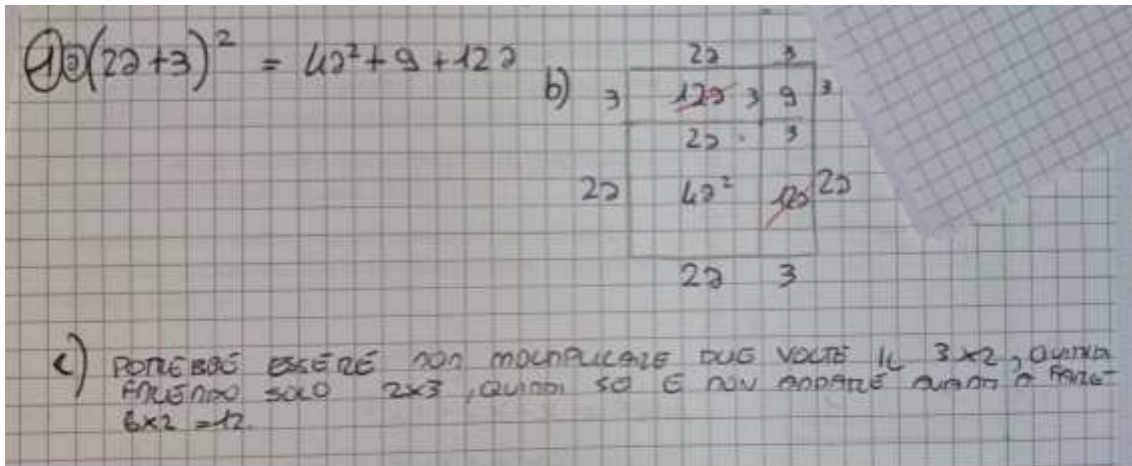 1 a) (2a+3)² = 4a²+9+12a
b)
2a 3
3 12a 3 9 3
2a 3
2a 4a² 12a 2a
2a 3
c) POTREBBE ESSERE NON MOLTIPLICARE DUE VOLTE IL 3x2, QUINDI
FACENDO SOLO 2x3, QUINDI E NON ANDARE
6x2 = 12.